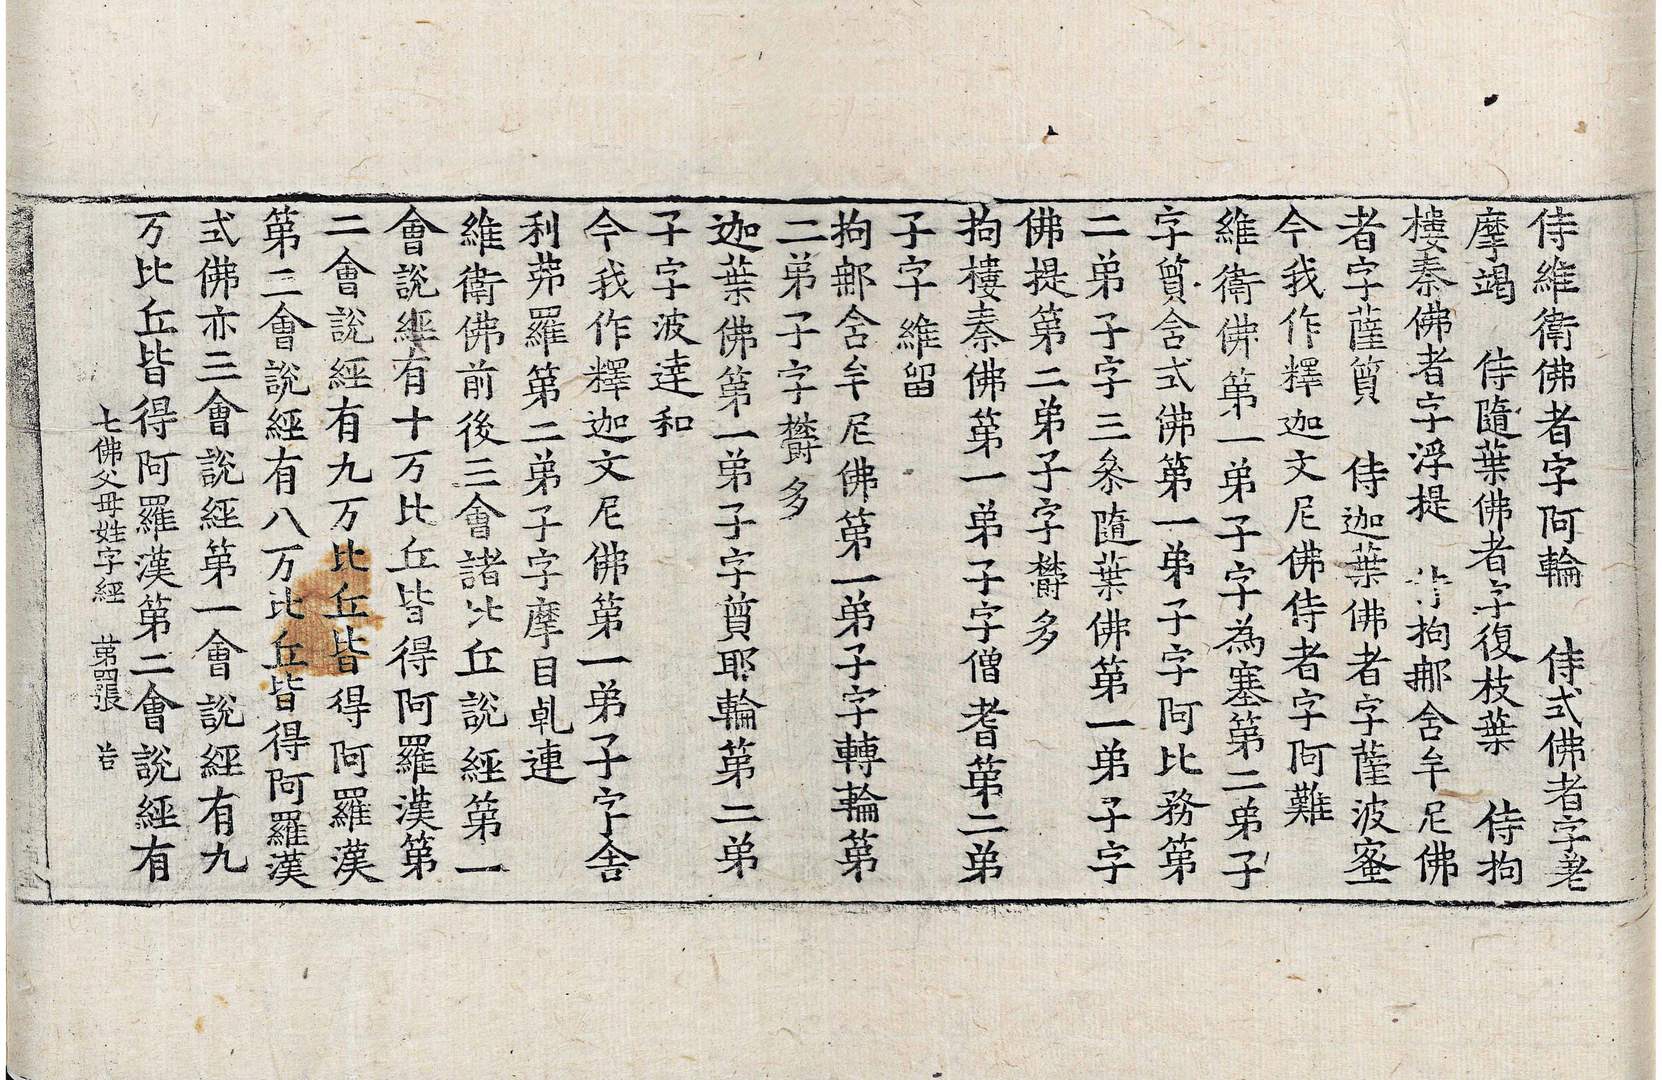 侍維衛佛者字阿輪　侍式佛者字差
摩竭　侍隨葉佛者字復枝葉　侍拘
樓秦佛者字浮提　侍拘那舍牟尼佛
者字薩質　侍迦葉佛者字薩波蜜
今我作釋迦文尼佛侍者字阿難
維衛佛第一弟子字為塞第二弟子
字質含式佛第一弟子字阿比務第
二弟子字三叅隨葉佛第一弟子字
佛提第二弟子字欝多
拘樓秦佛第一弟子字僧耆第二弟
子字維留
拘那含牟尼佛第一弟子字轉輪第
二弟子字欝多
迦葉佛第一弟子字質耶輪第二弟
子字波達和
今我作釋迦文尼佛第一弟子字舍
利茀羅第二弟子字摩目乹連
維衛佛前後三會諸比丘說經第一
會說經有十万比丘皆得阿羅漢第
二會說經有九万比丘皆得阿羅漢
第三會說經有八万比丘皆得阿羅漢
式佛亦三會說經第一會說經有九
万比丘皆得阿羅漢第二會說經有
七佛父母姓字經　第四張